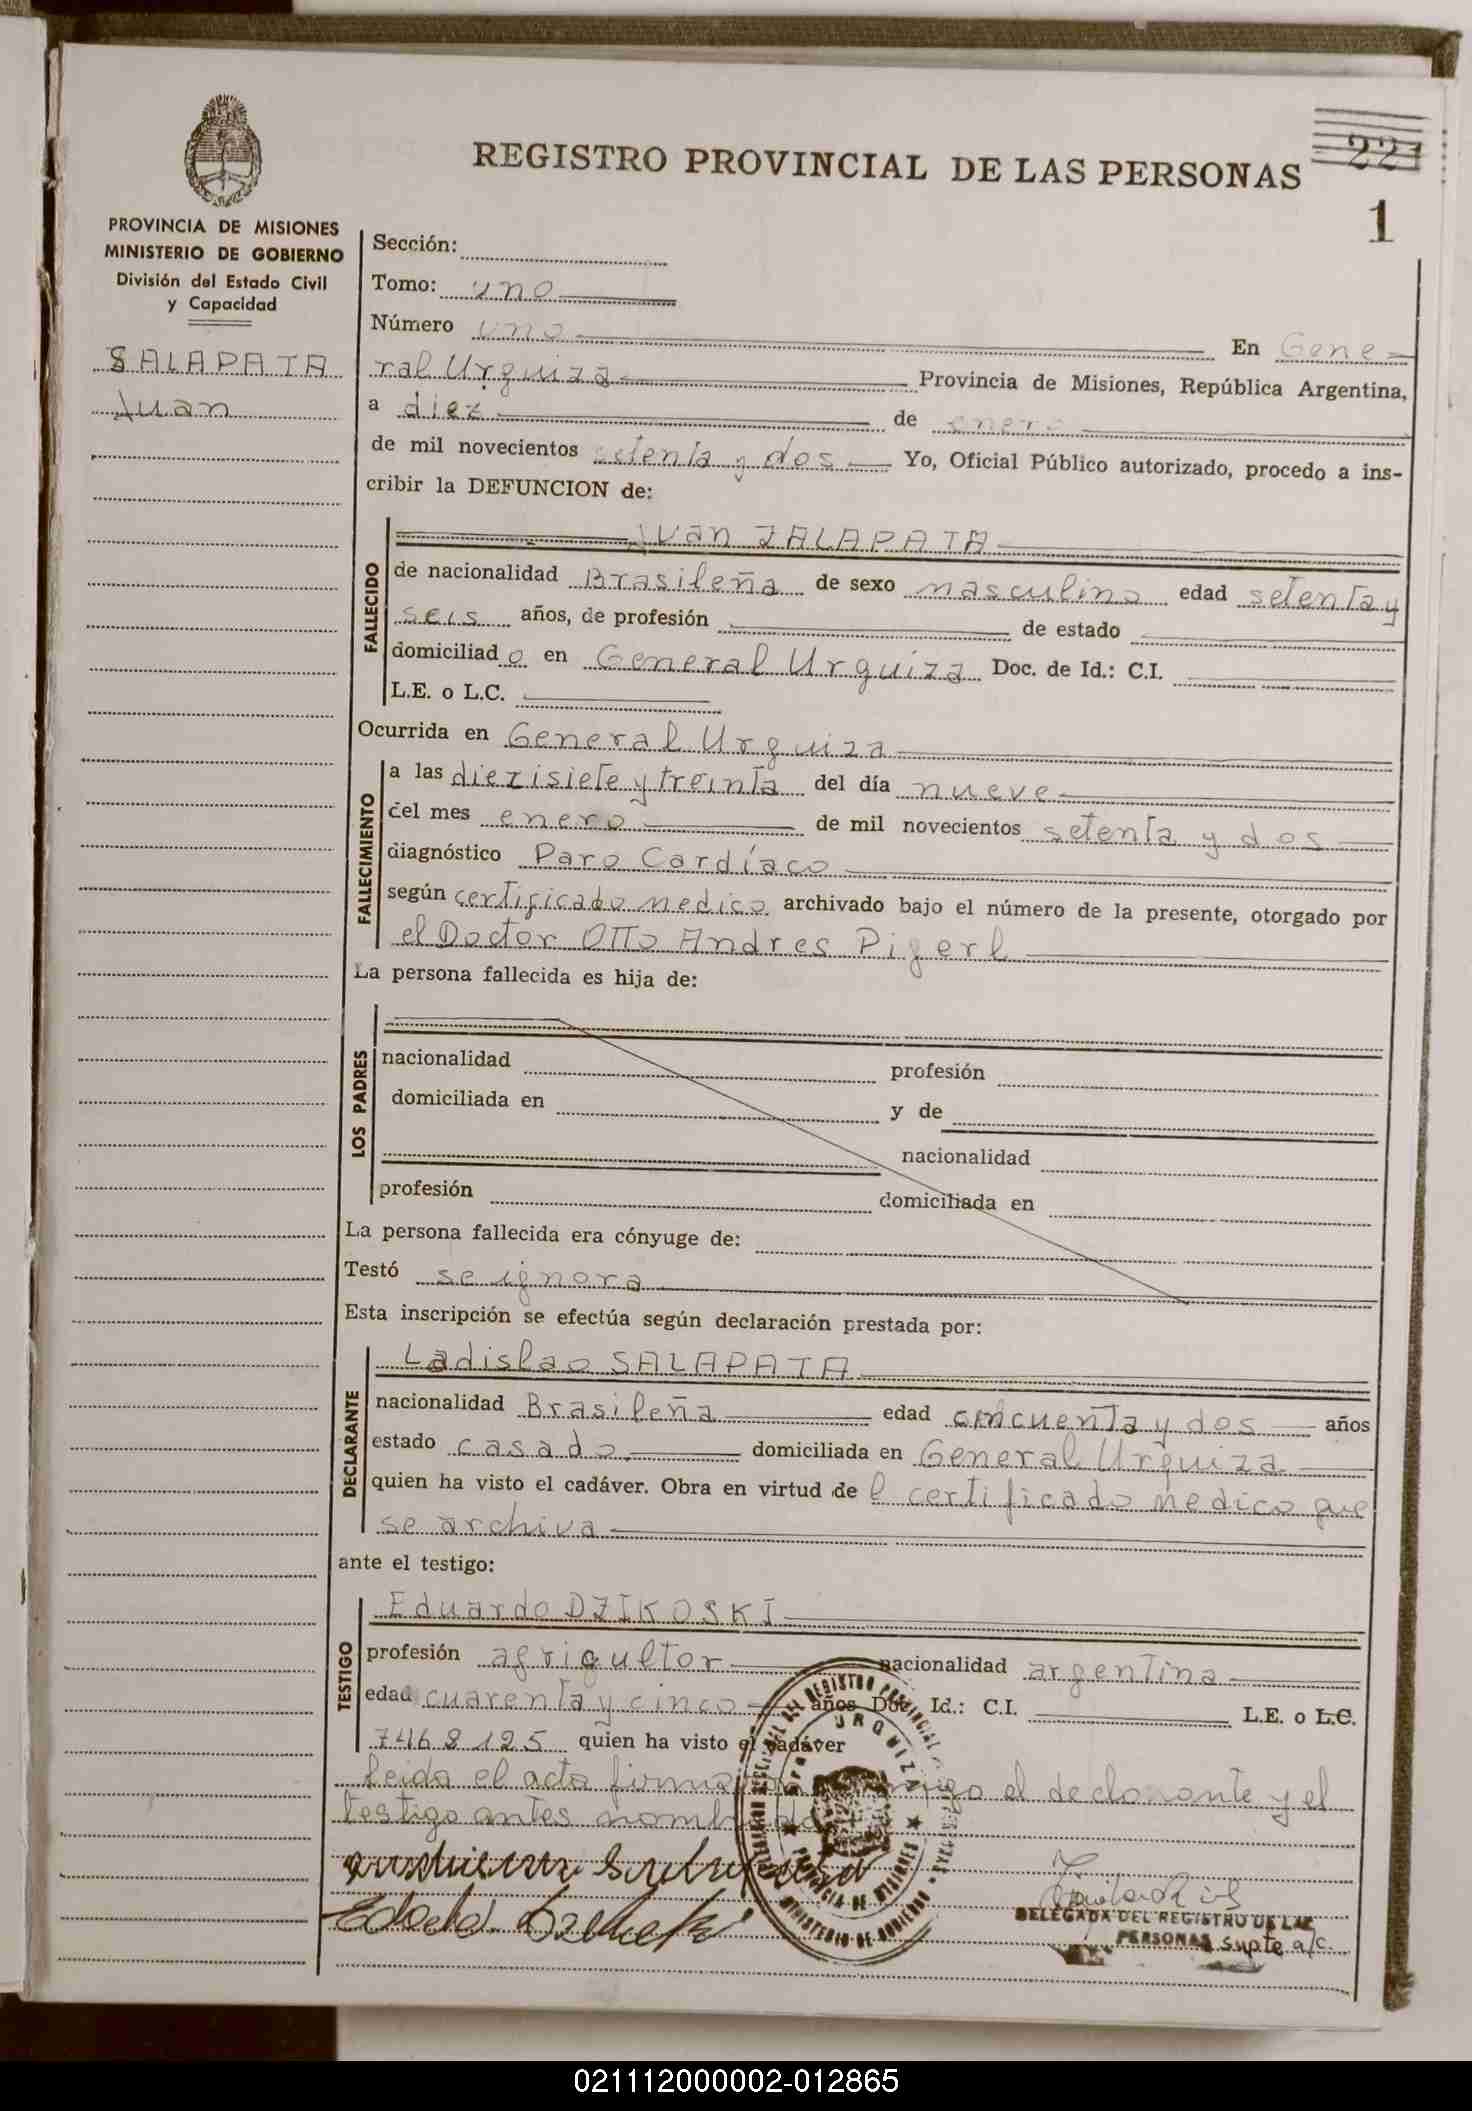 REGISTRO PROVINCIAL DE LAS PERSONAS
221
1
PROVINCIA DE MISIONES
MINISTERIO DE GOBIERNO
División del Estado Civil
y Capacidad
SALAPATA
Juan
Sección:
Tomo: uno
Número uno En Gene-
ral Urquiza Provincia de Misiones, República Argentina,
a diez de enero
de mil novecientos setenta y dos Yo, Oficial Público autorizado, procedo a ins-
cribir la DEFUNCION de:
FALLECIDO
Juan ZALAPATA
de nacionalidad Brasileña de sexo masculino edad setenta y
seis años, de profesión de estado
domiciliado en General Urquiza Doc. de Id.: C.I.
L.E. o L.C.
Ocurrida en General Urquiza
FALLECIMIENTO
a las diezisiete y treinta del día nueve
del mes enero de mil novecientos setenta y dos
diagnóstico Paro Cardíaco
según certificado medico archivado bajo el número de la presente, otorgado por
el Doctor Otto Andres Pigerl
La persona fallecida es hija de:
LOS PADRES
nacionalidad profesión
domiciliada en y de
nacionalidad
profesión domiciliada en
La persona fallecida era cónyuge de:
Testó se ignora
Esta inscripción se efectúa según declaración prestada por:
DECLARANTE
Ladislao SALAPATA
nacionalidad Brasileña edad cincuenta y dos años
estado casado domiciliada en General Urquiza
quien ha visto el cadáver. Obra en virtud de l certificado medico que
se archiva
ante el testigo:
TESTIGO
Eduardo DZIKOSKI
profesión agriqultor nacionalidad argentina
edad cuarenta y cinco años Doc. Id.: C.I. L.E. o L.C.
7468125 quien ha visto el cadáver
leida el acta firman conmigo el declarante y el
testigo antes nombrados
DELEGADA DEL REGISTRO DE LAS
PERSONAS supte a/c.
PROVINCIA DE MISIONES
MINISTERIO DE GOBIERNO
021112000002-012865